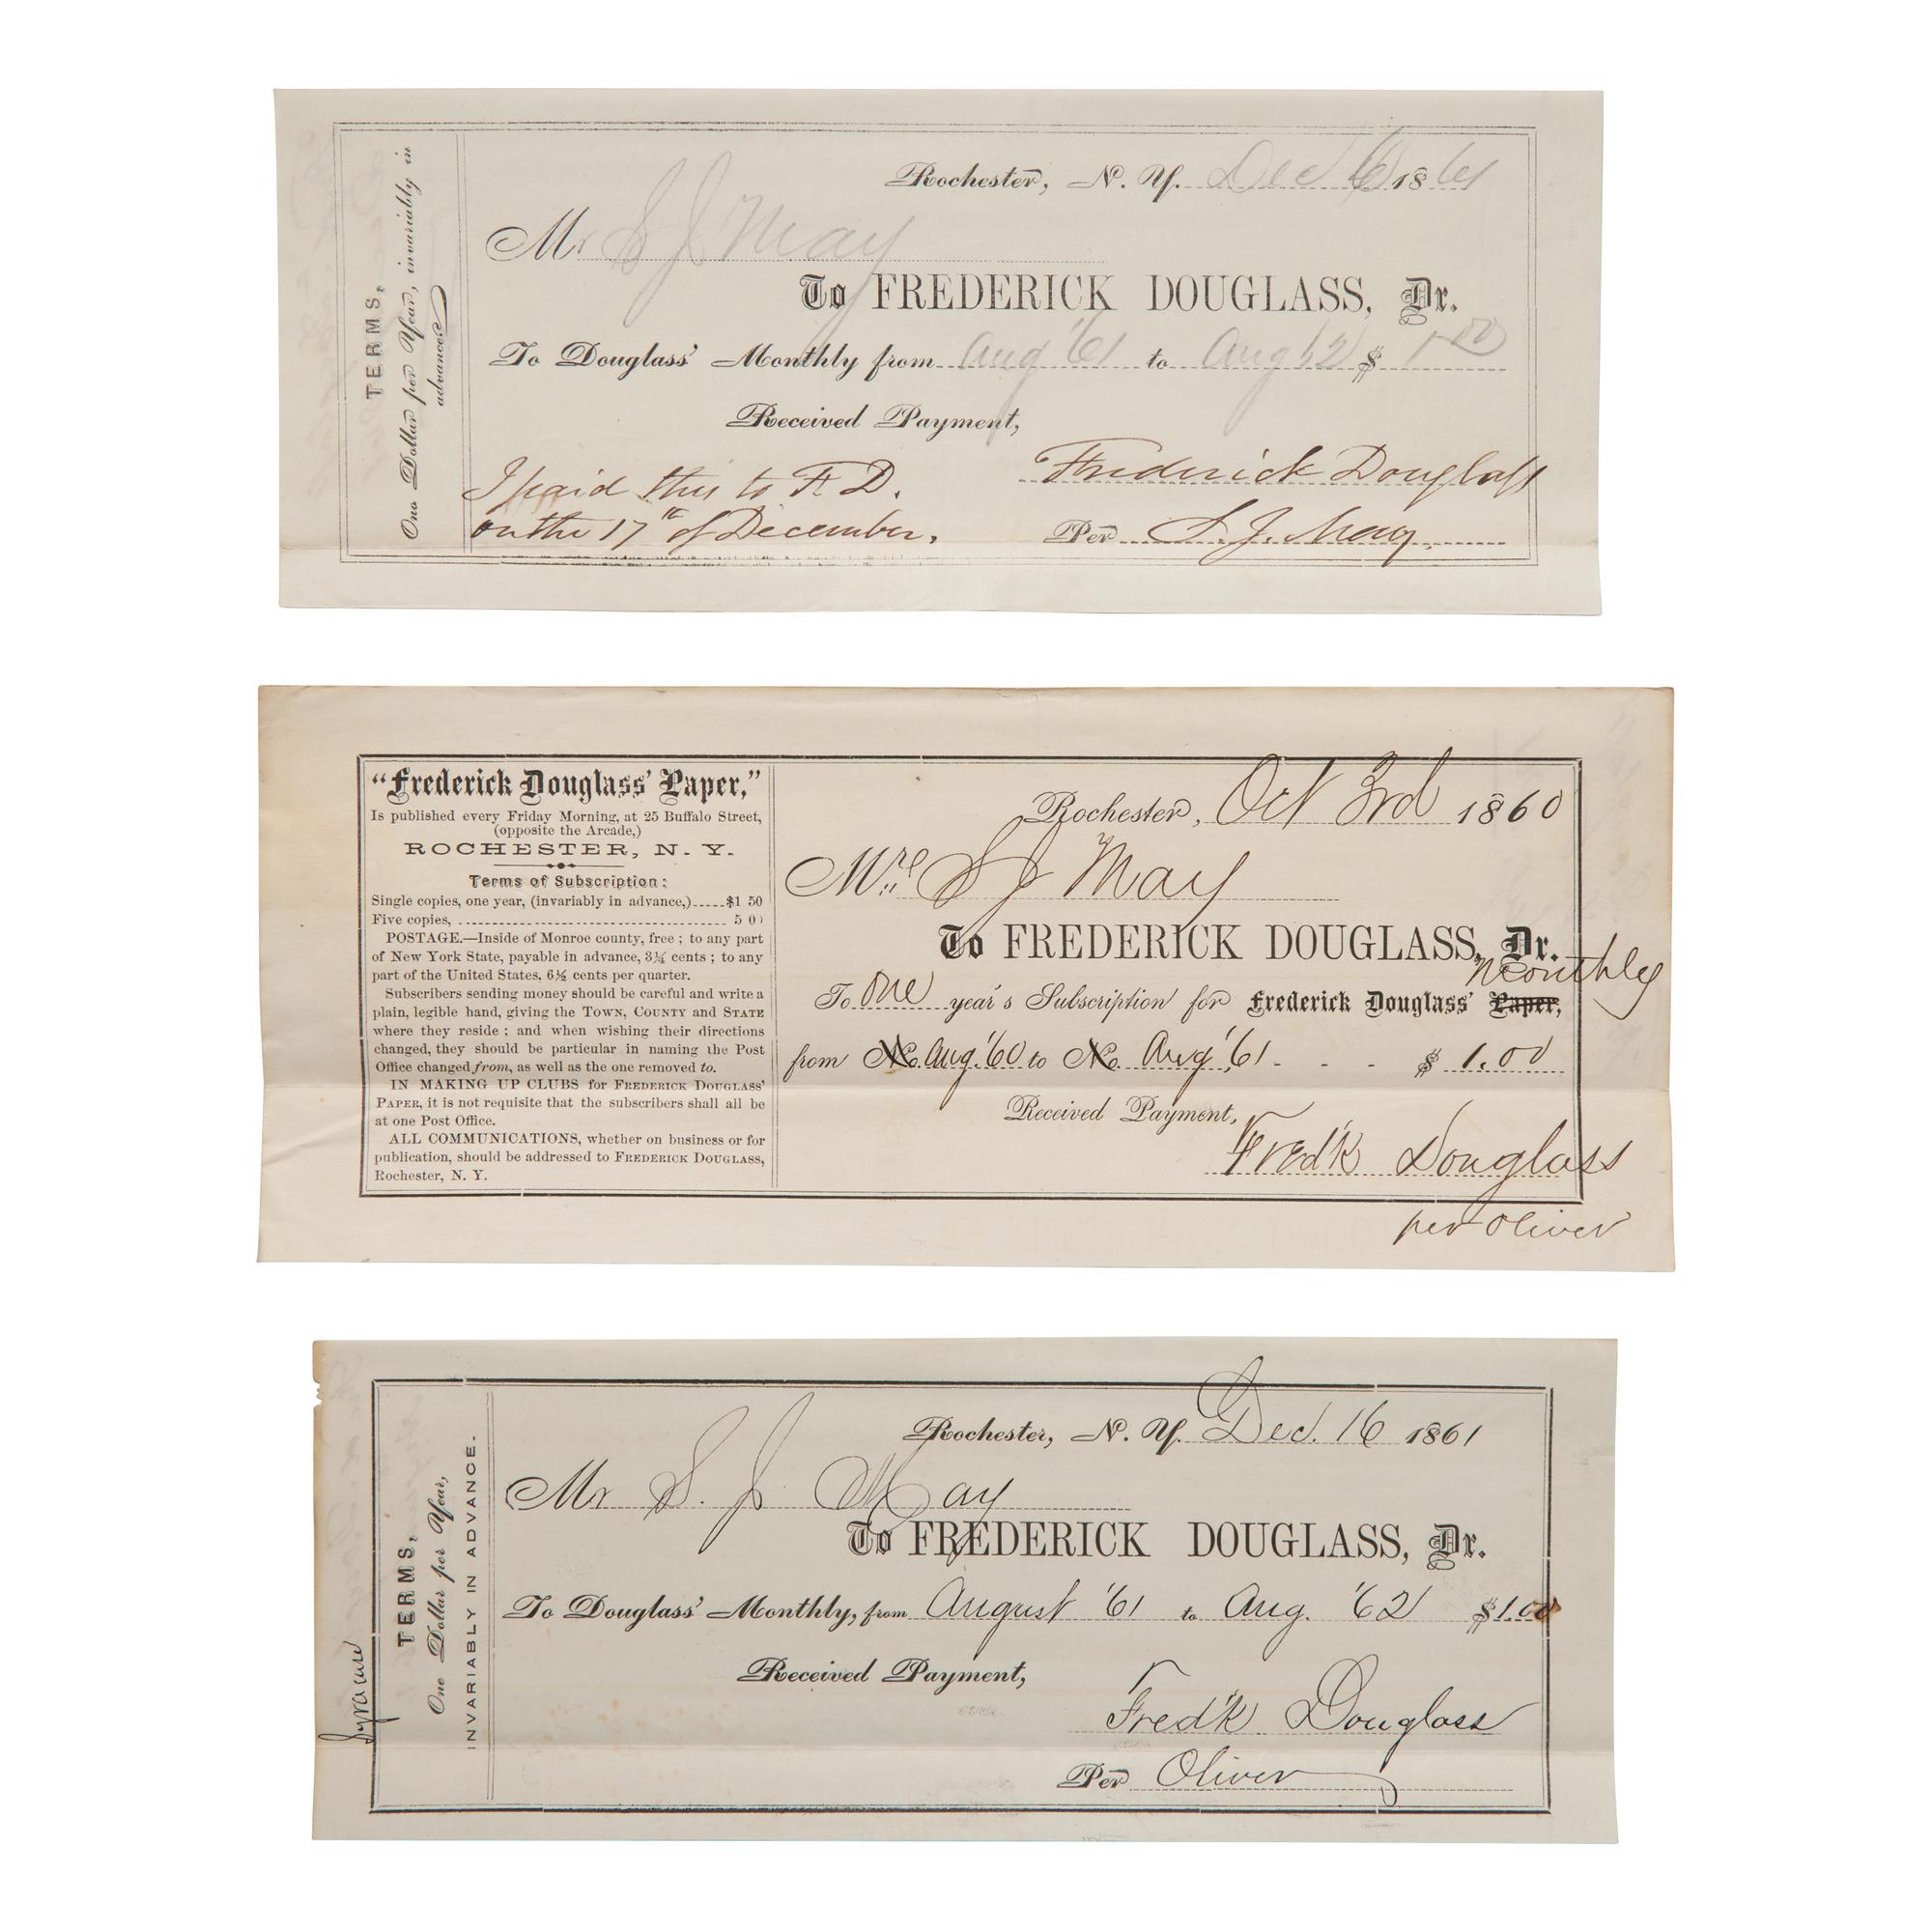 TERMS,
One Dollar per Year, invariably in
advance.
Rochester, N. Y. Dec 6 1861
Mr S J May
To FREDERICK DOUGLASS, Dr.
To Douglass' Monthly from Aug '61 to Aug 62 $ 1.00
Received Payment,
Frederick Douglass
I paid this to F. D.
on the 17th of December.
Per S. J. May.
"Frederick Douglass' Paper,"
Is published every Friday Morning, at 25 Buffalo Street,
(opposite the Arcade,)
ROCHESTER, N. Y.
Terms of Subscription:
Single copies, one year, (invariably in advance,) $1 50
Five copies, 5 00
POSTAGE.—Inside of Monroe county, free; to any part
of New York State, payable in advance, 3¼ cents; to any
part of the United States, 6½ cents per quarter.
Subscribers sending money should be careful and write a
plain, legible hand, giving the TOWN, COUNTY and STATE
where they reside; and when wishing their directions
changed, they should be particular in naming the Post
Office changed from, as well as the one removed to.
IN MAKING UP CLUBS for FREDERICK DOUGLASS'
PAPER, it is not requisite that the subscribers shall all be
at one Post Office.
ALL COMMUNICATIONS, whether on business or for
publication, should be addressed to FREDERICK DOUGLASS,
Rochester, N. Y.
Rochester, Oct 3rd 1860
S J May
To FREDERICK DOUGLASS, Dr.
Monthly
To One year's Subscription for Frederick Douglass' Paper,
from No. Aug. '60 to No. Aug '61 - - - $ 1.00
Received Payment,
Fred'k Douglass
per Oliver
Syracuse
TERMS,
One Dollar per Year,
INVARIABLY IN ADVANCE.
Rochester, N. Y. Dec. 16 1861
Mr S. J May
To FREDERICK DOUGLASS, Dr.
To Douglass' Monthly, from August '61 to Aug. '62 $1.00
Received Payment,
Fred'k Douglass
Per Oliver